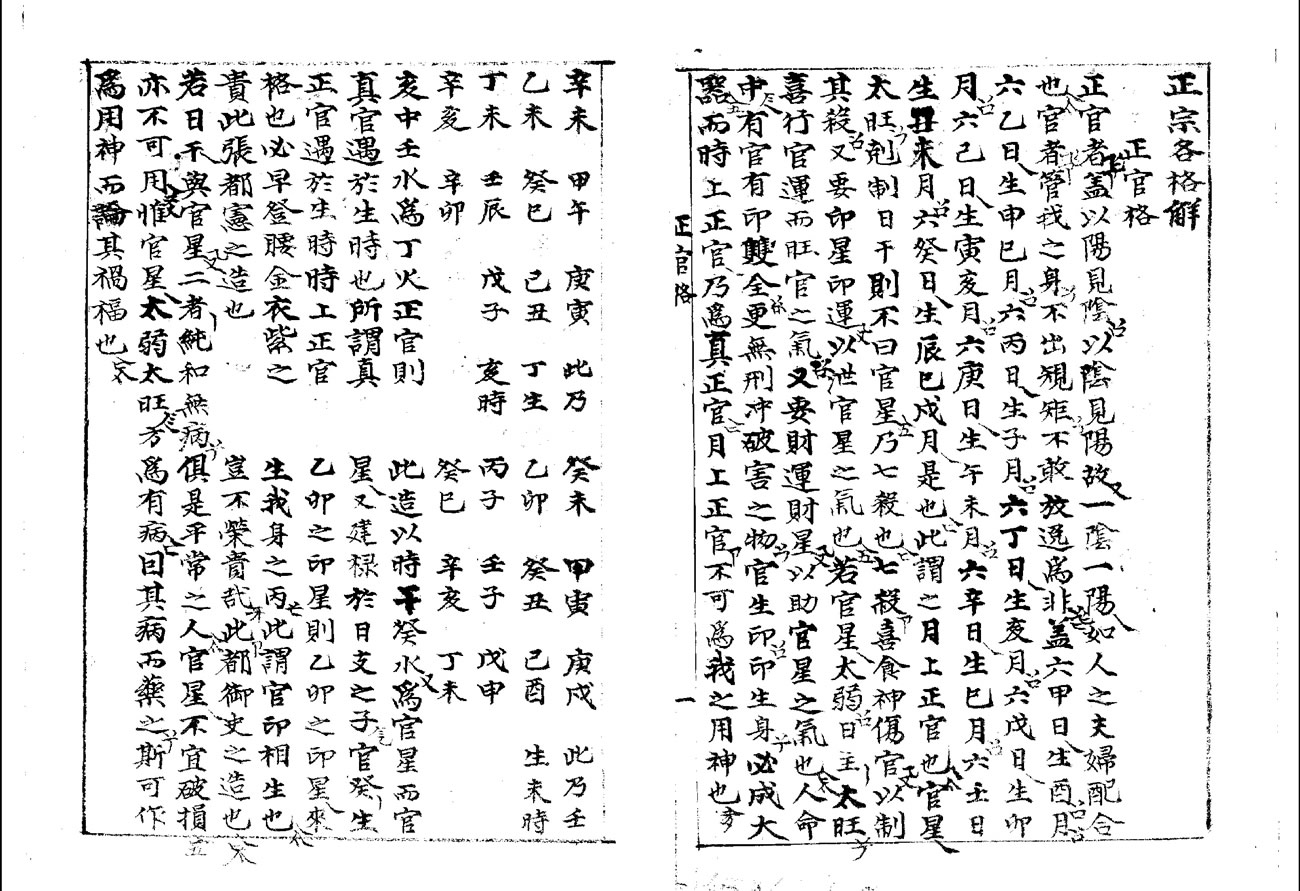 正宗各格解
正官格
正官者蓋以陽見陰以陰見陽故一陰一陽如人之夫婦配合
也官者管我之身不出規矩不敢放逸爲非蓋六甲日生酉月
六乙日生申巳月六丙日生子月六丁日生亥月六戊日生卯
月六己日生寅亥月六庚日生午未月六辛日生巳月六壬日
生丑未月六癸日生辰巳戌月是也此謂之月上正官也官星
太旺剋制日干則不曰官星乃七殺也七殺喜食神傷官以制
其殺又要印星印運以泄官星之氣也若官星太弱日主太旺
喜行官運而旺官之氣又要財運財星以助官星之氣也人命
中有官有印雙全更無刑冲破害之物官生印印生身必成大
器而時上正官乃爲真正官月上正官不可爲我之用神也
正官格
一
辛未 甲午 庚寅 此乃
乙未 癸巳 己丑 丁生
丁未 壬辰 戊子 亥時
辛亥 辛卯
亥中壬水爲丁火正官則
真官遇於生時也所謂真
正官遇於生時時上正官
格也必早登腰金衣紫之
貴此張都憲之造也
癸未 甲寅 庚戌 此乃壬
乙卯 癸丑 己酉 生未時
丙子 壬子 戊申
癸巳 辛亥 丁未
此造以時干癸水爲官星而官
星又建祿於日支之子官癸生
乙卯之印星則乙卯之印星來
生我身之丙此謂官印相生也
豈不榮貴哉此都御史之造也
若日干與官星二者純和無病俱是平常之人官星不宜破損
亦不可用惟官星太弱太旺方爲有病曰其病而藥之斯可作
爲用神而論其禍福也